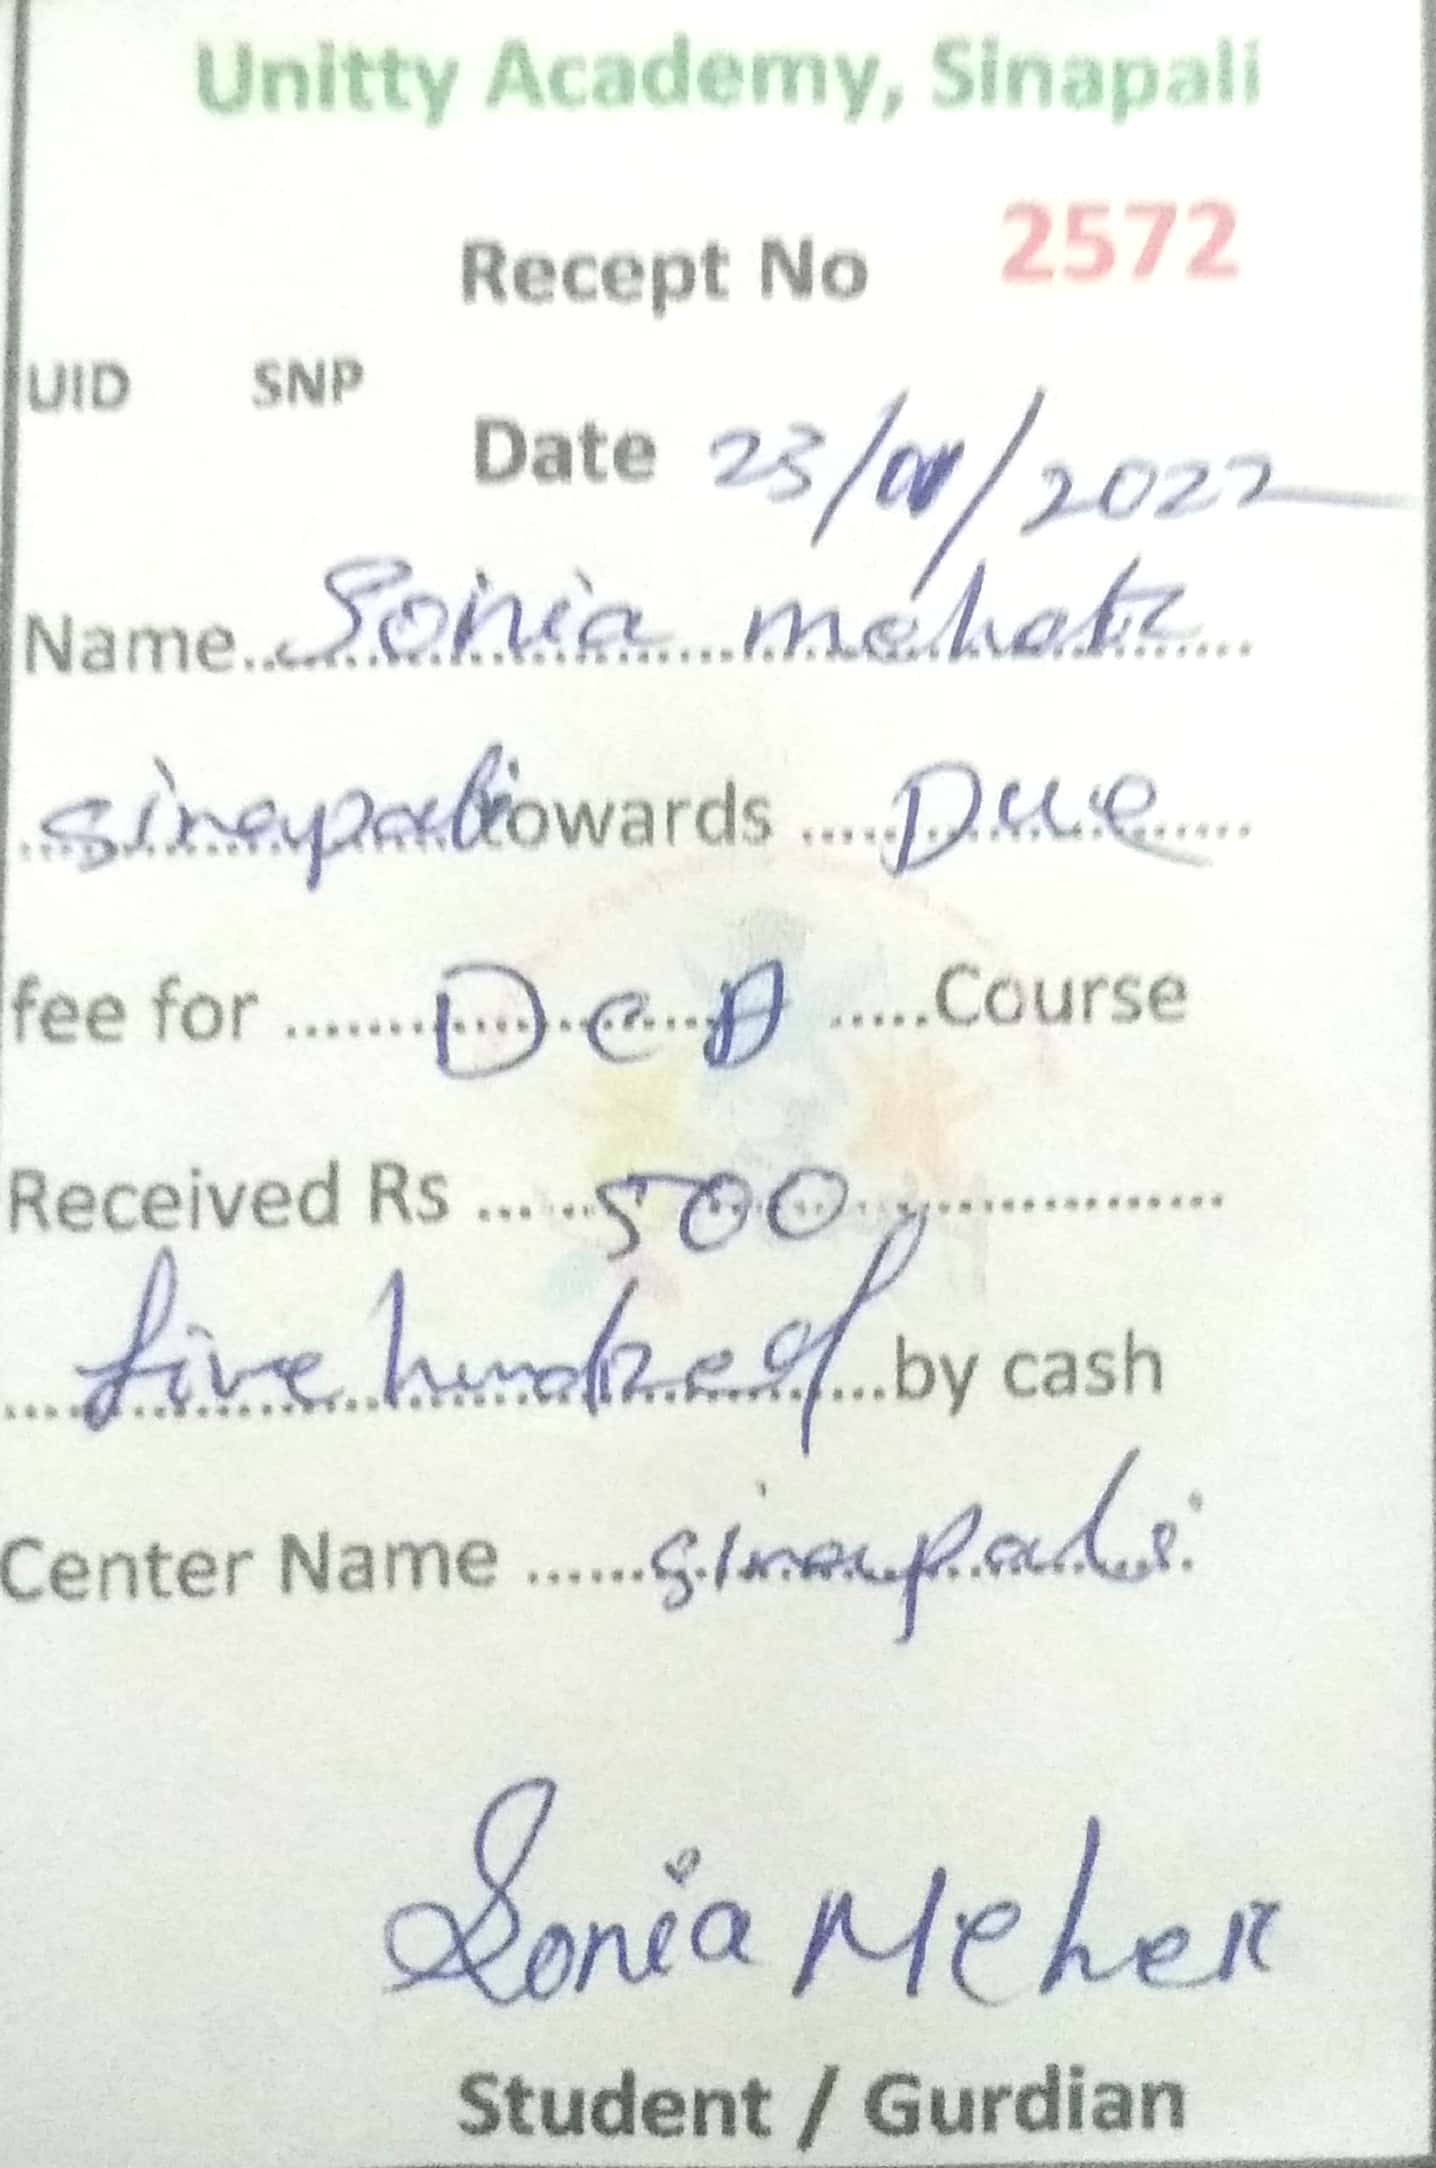 Unitty Academy, Sinapali
Recept No 2572
UID SNP
Date 23/01/2022
Name.. Sonia meher
sinapali towards ..... Due
fee for ....... DCA .....Course
Received Rs ...... 500
five hundred ...by cash
Center Name ...... sinapali
Sonia Meher
Student / Gurdian